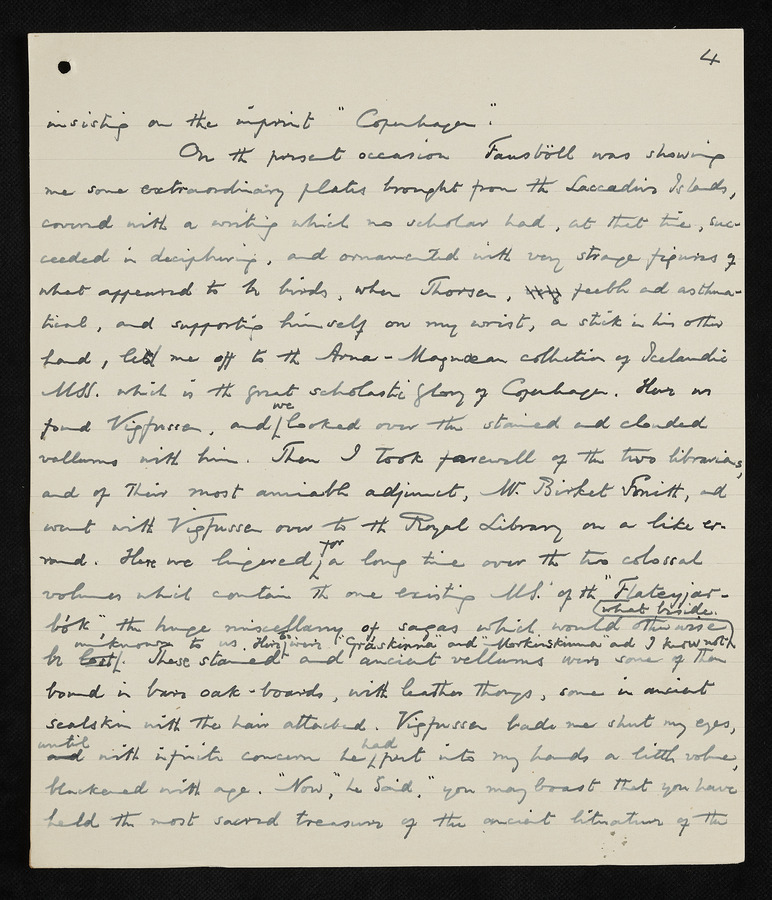 4
insisting on the imprint "Copenhagen".
On the present occasion Fausböll was showing
me some extraordinary plates brought from the Laccadive Islands,
covered with a writing which no scholar had, at that time, suc-
ceeded in deciphering, and ornamented with very strange figures of
what appeared to be birds, when Thorsen, feeble and asthma-
tical, and supporting himself on my wrist, a stick in his other
hand, led me off to the Arna-Magnæan collection of Icelandic
MSS. which is the great scholastic glory of Copenhagen. Here we
found Vigfussen, and we looked over the stained and clouded
vellums with him. Then I took farewell of the two librarians,
and of their most amiable adjunct, Mr. Birket Smith, and
went with Vigfussen over to the Royal Library on a like er-
rand. Here we lingered for a long time over the two colossal
volumes which contain the one existing MS. of the "Flateyjar-
bók", the huge miscellany of sagas which would otherwise
be lost unknown to us. Here too were "Gráskinna" and "Morkinskinna" and I know not
what beside.
These stained and ancient vellums were some of them
bound in bare oak-boards, with leather thongs, some in ancient
sealskin with the hair attached. Vigfussen bade me shut my eyes,
and until with infinite concern he had put into my hands a little volume,
blackened with age. "Now," he said, "you may boast that you have
held the most sacred treasure of the ancient literature of the